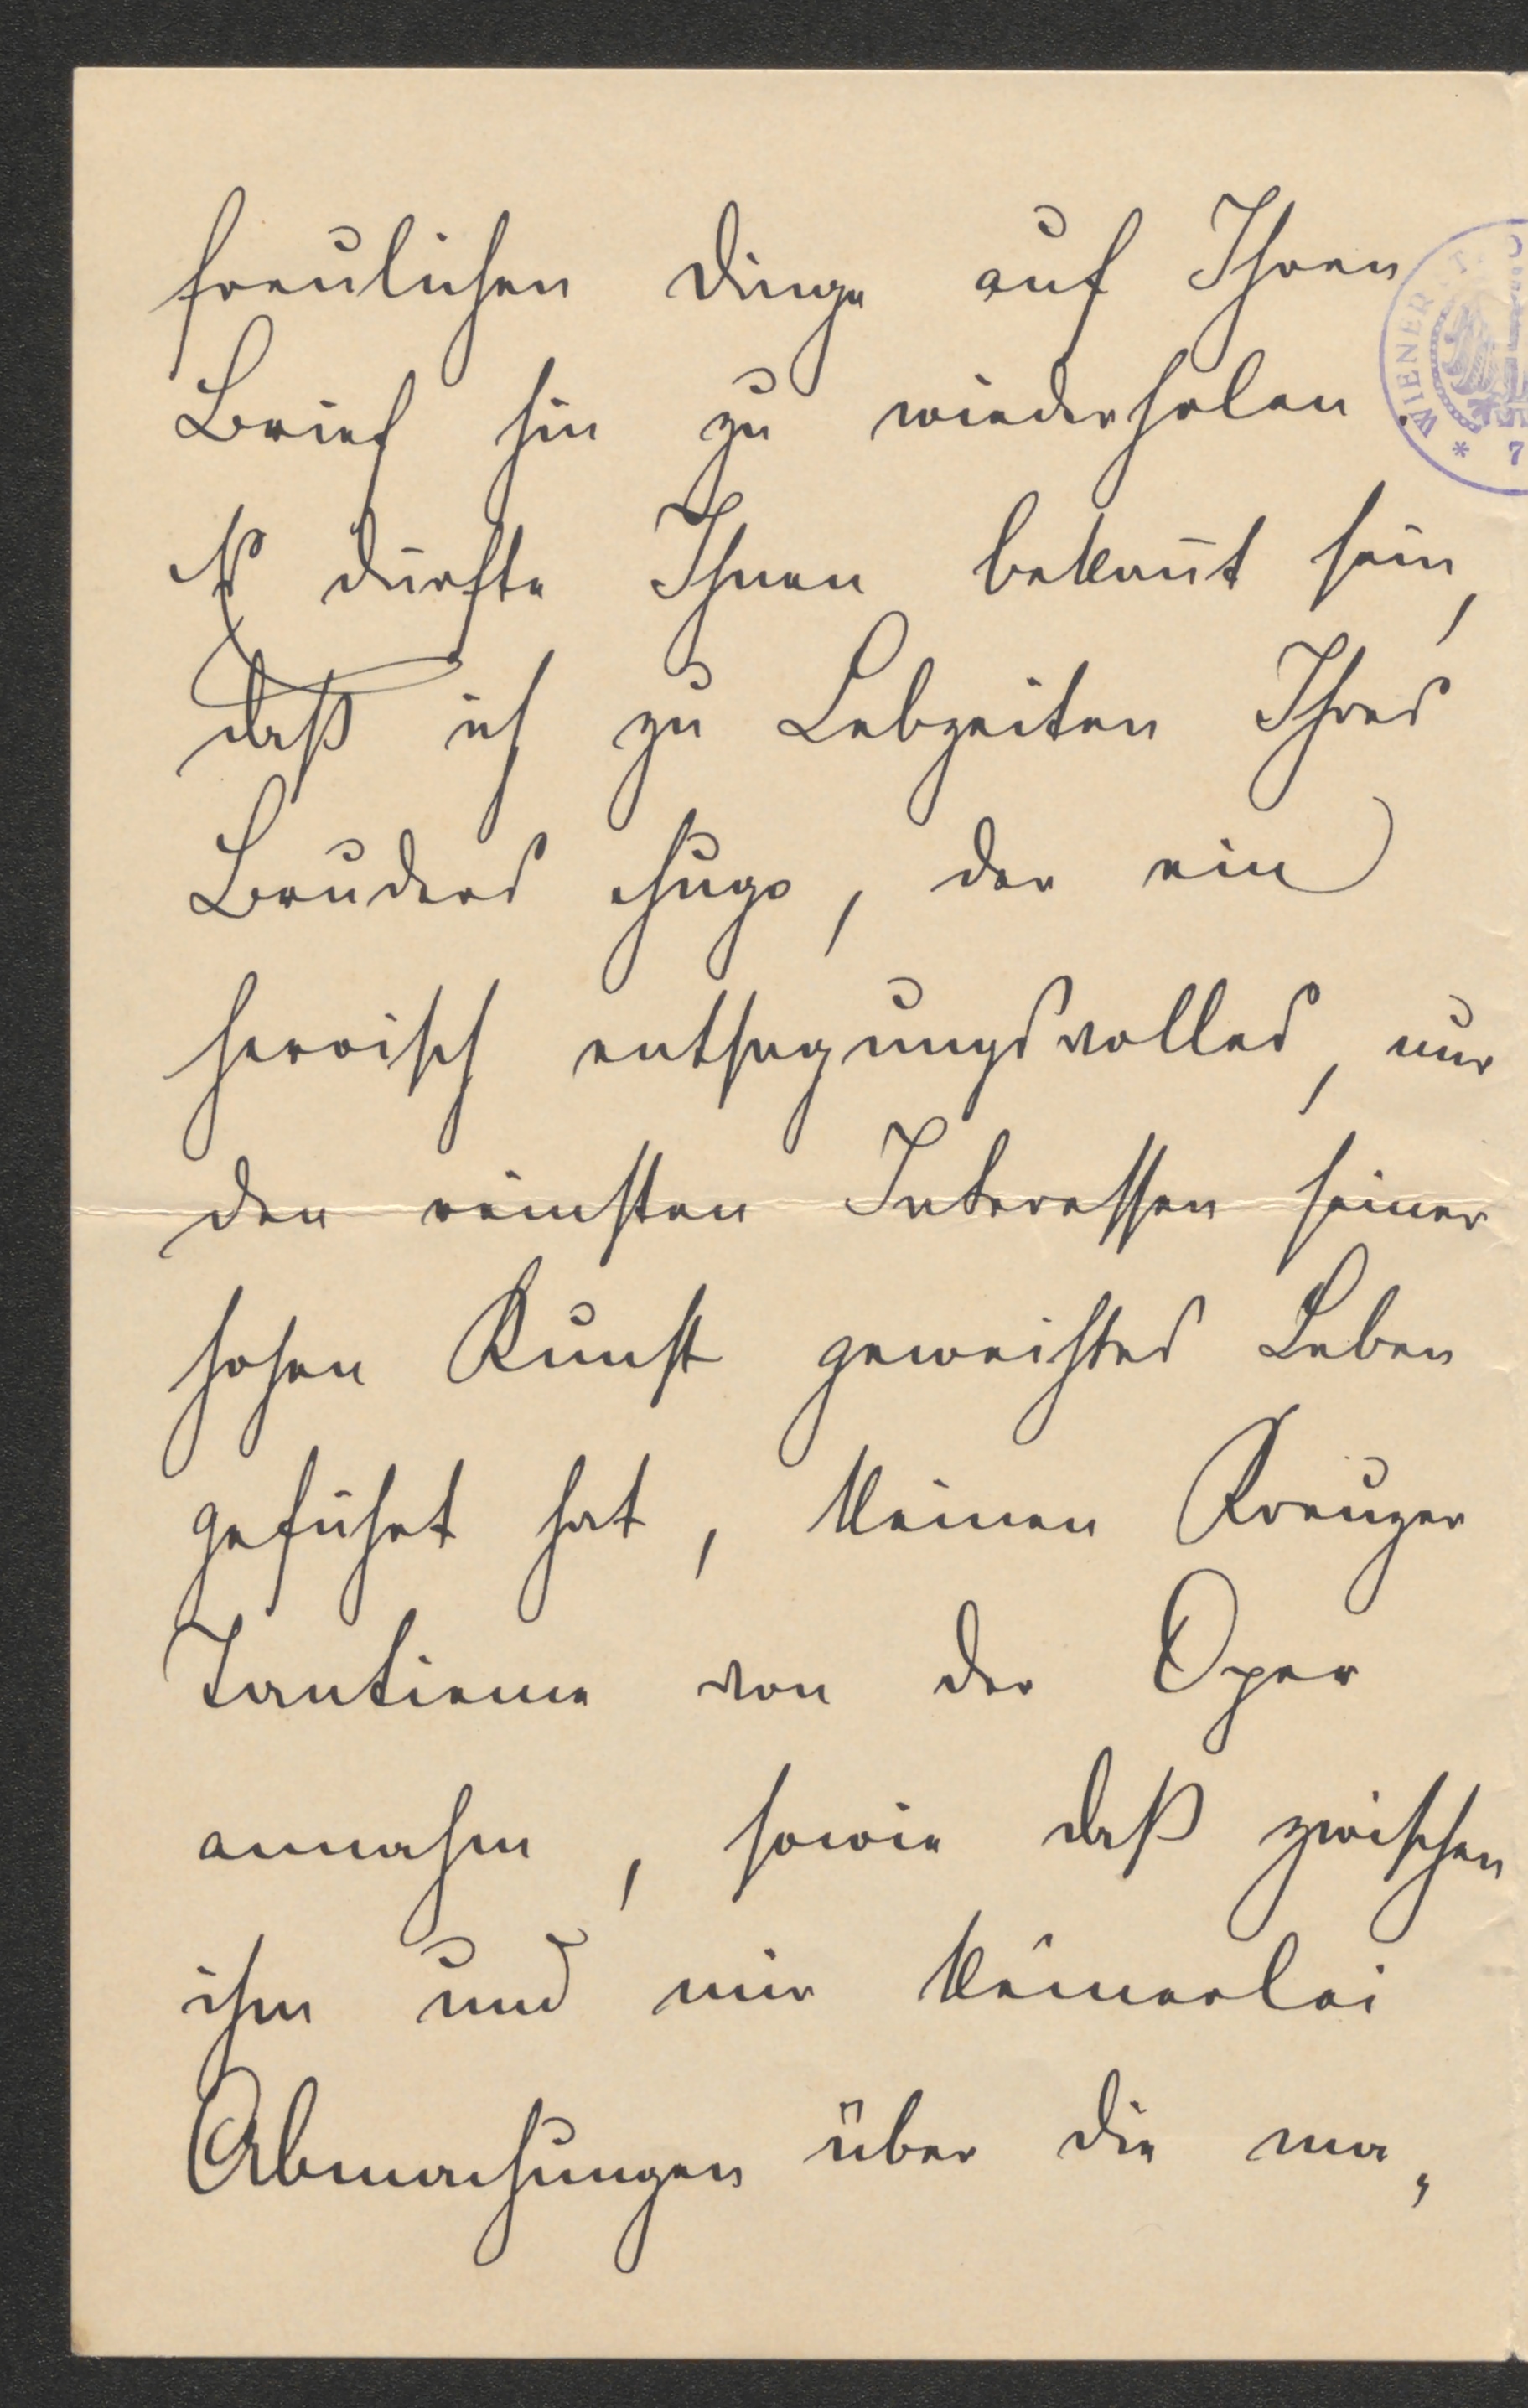 freulichen Dinge auf Ihren
Brief hin zu wiederholen.
Es dürfte Ihnen bekannt sein,
daß ich zu Lebzeiten Ihres
Bruders Hugo, der ein
heroisch entsagungsvolles, nur
den reinsten Interessen seiner
hohen Kunst geweihtes Leben
geführt hat, keinen Kreuzer
Tantieme von der Oper
annahm, sowie daß zwischen
ihm und mir keinerlei
Abmachungen über die ma„
WIENER
* 7